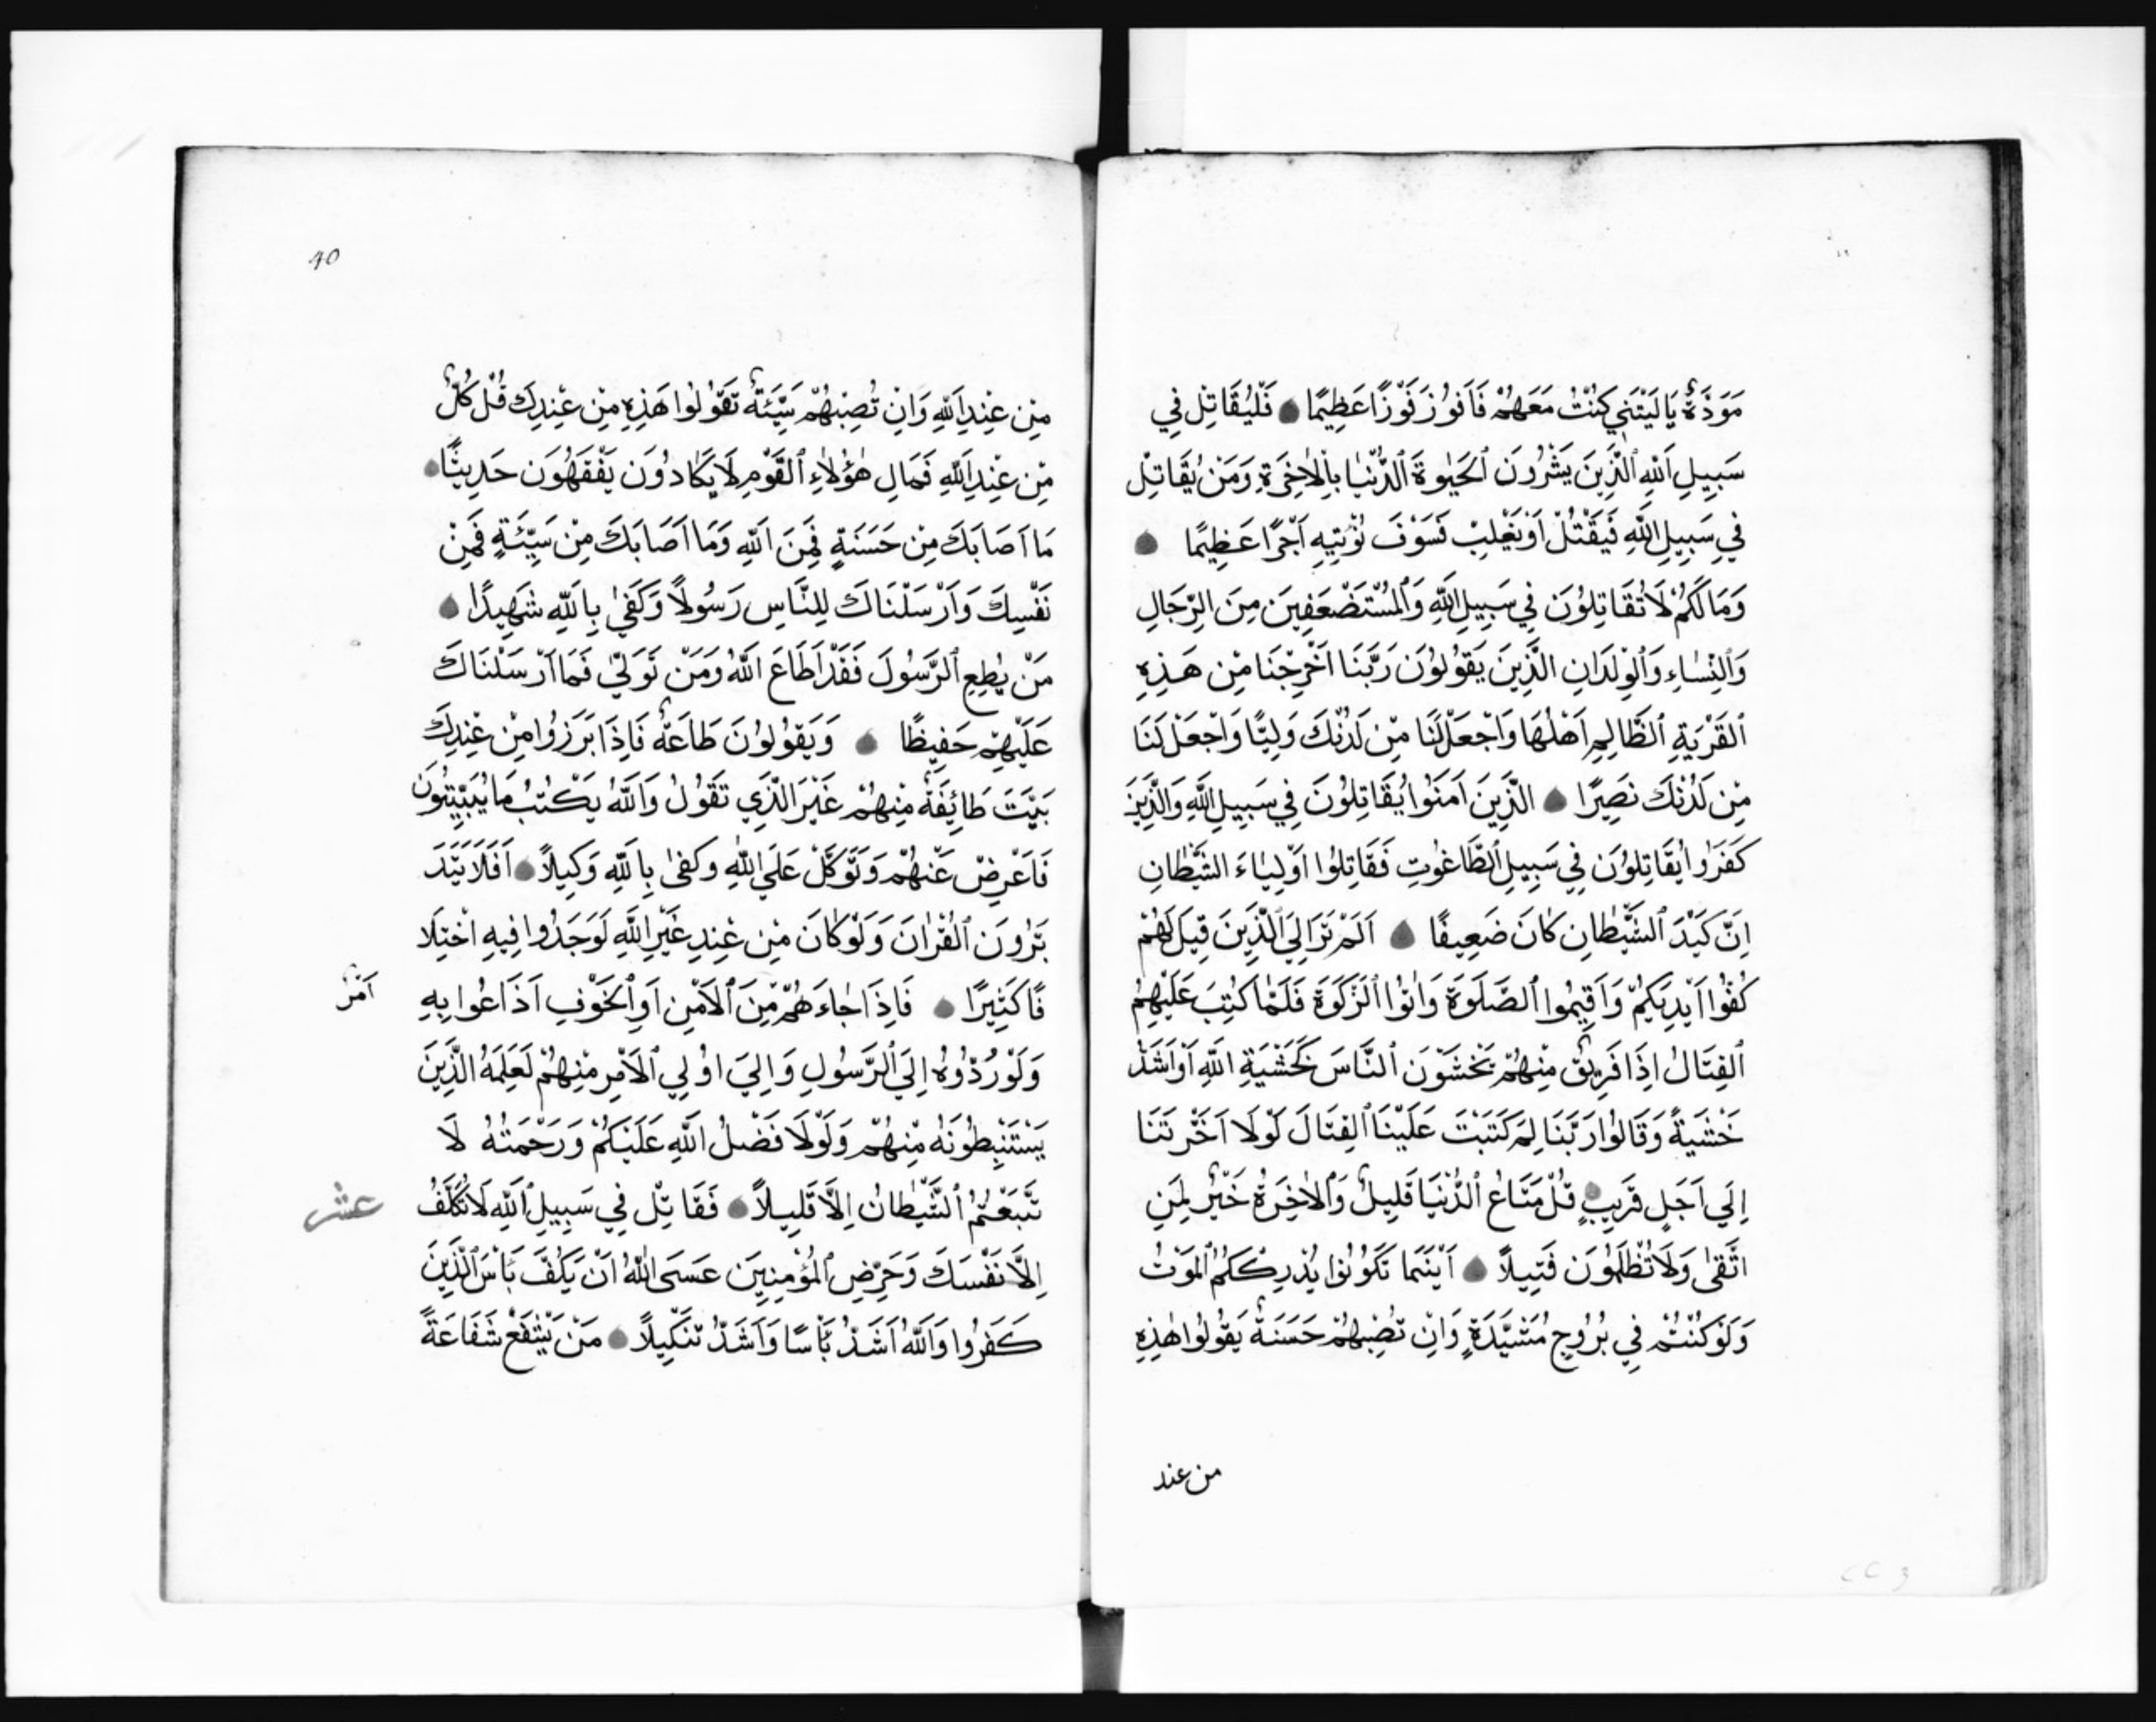 مَوَدَّةٌ يَا لَيْتَنِي كُنْتُ مَعَهُمْ فَاَفُوزَ فَوْزًا عَظِيمًا فَلْيُقَاتِلْ فِي
سَبِيلِ اللّٰهِ الَّذِينَ يَشْرُونَ الْحَيٰوةَ الدُّنْيَا بِالْاٰخِرَةِ وَمَنْ يُقَاتِلْ
فِي سَبِيلِ اللّٰهِ فَيُقْتَلْ اَوْ يَغْلِبْ فَسَوْفَ نُؤْتِيهِ اَجْرًا عَظِيمًا
وَمَا لَكُمْ لَا تُقَاتِلُونَ فِي سَبِيلِ اللّٰهِ وَالْمُسْتَضْعَفِينَ مِنَ الرِّجَالِ
وَالنِّسَاءِ وَالْوِلْدَانِ الَّذِينَ يَقُولُونَ رَبَّنَا اَخْرِجْنَا مِنْ هَذِهِ
الْقَرْيَةِ الظَّالِمِ اَهْلُهَا وَاجْعَلْ لَنَا مِنْ لَدُنْكَ وَلِيًّا وَاجْعَلْ لَنَا
مِنْ لَدُنْكَ نَصِيرًا الَّذِينَ اٰمَنُوا يُقَاتِلُونَ فِي سَبِيلِ اللّٰهِ وَالَّذِينَ
كَفَرُوا يُقَاتِلُونَ فِي سَبِيلِ الطَّاغُوتِ فَقَاتِلُوا اَوْلِيَاءَ الشَّيْطَانِ
اِنَّ كَيْدَ الشَّيْطَانِ كَانَ ضَعِيفًا اَلَمْ تَرَ اِلَى الَّذِينَ قِيلَ لَهُمْ
كُفُّوا اَيْدِيَكُمْ وَاَقِيمُوا الصَّلٰوةَ وَاٰتُوا الزَّكٰوةَ فَلَمَّا كُتِبَ عَلَيْهِمُ
الْقِتَالُ اِذَا فَرِيقٌ مِنْهُمْ يَخْشَوْنَ النَّاسَ كَخَشْيَةِ اللّٰهِ اَوْ اَشَدَّ
خَشْيَةً وَقَالُوا رَبَّنَا لِمَ كَتَبْتَ عَلَيْنَا الْقِتَالَ لَوْلَا اَخَّرْتَنَا
اِلَى اَجَلٍ قَرِيبٍ قُلْ مَتَاعُ الدُّنْيَا قَلِيلٌ وَالْاٰخِرَةُ خَيْرٌ لِمَنِ
اتَّقٰى وَلَا تُظْلَمُونَ فَتِيلًا اَيْنَمَا تَكُونُوا يُدْرِكْكُمُ الْمَوْتُ
وَلَوْ كُنْتُمْ فِي بُرُوجٍ مُشَيَّدَةٍ وَاِنْ تُصِبْهُمْ حَسَنَةٌ يَقُولُوا هٰذِهِ
من عند
40
مِنْ عِنْدِ اللّٰهِ وَاِنْ تُصِبْهُمْ سَيِّئَةٌ يَقُولُوا هَذِهِ مِنْ عِنْدِكَ قُلْ كُلٌّ
مِنْ عِنْدِ اللّٰهِ فَمَالِ هٰؤُلَاءِ الْقَوْمِ لَا يَكَادُونَ يَفْقَهُونَ حَدِيثًا
مَا اَصَابَكَ مِنْ حَسَنَةٍ فَمِنَ اللّٰهِ وَمَا اَصَابَكَ مِنْ سَيِّئَةٍ فَمِنْ
نَفْسِكَ وَاَرْسَلْنَاكَ لِلنَّاسِ رَسُولًا وَكَفٰى بِاللّٰهِ شَهِيدًا
مَنْ يُطِعِ الرَّسُولَ فَقَدْ اَطَاعَ اللّٰهَ وَمَنْ تَوَلّٰى فَمَا اَرْسَلْنَاكَ
عَلَيْهِمْ حَفِيظًا وَيَقُولُونَ طَاعَةٌ فَاِذَا بَرَزُوا مِنْ عِنْدِكَ
بَيَّتَ طَائِفَةٌ مِنْهُمْ غَيْرَ الَّذِي تَقُولُ وَاللّٰهُ يَكْتُبُ مَا يُبَيِّتُونَ
فَاَعْرِضْ عَنْهُمْ وَتَوَكَّلْ عَلَى اللّٰهِ وَكَفٰى بِاللّٰهِ وَكِيلًا اَفَلَا يَتَدَ
بَّرُونَ الْقُرْاٰنَ وَلَوْ كَانَ مِنْ عِنْدِ غَيْرِ اللّٰهِ لَوَجَدُوا فِيهِ اخْتِلَا
فًا كَثِيرًا فَاِذَا جَاءَهُمْ مِنَ الْاَمْنِ اَوِ الْخَوْفِ اَذَاعُوا بِهِ
اَمْرٌ
وَلَوْ رُدُّوهُ اِلَى الرَّسُولِ وَاِلٰى اُولِي الْاَمْرِ مِنْهُمْ لَعَلِمَهُ الَّذِينَ
يَسْتَنْبِطُونَهُ مِنْهُمْ وَلَوْلَا فَضْلُ اللّٰهِ عَلَيْكُمْ وَرَحْمَتُهُ لَا
تَّبَعْتُمُ الشَّيْطَانَ اِلَّا قَلِيلًا فَقَاتِلْ فِي سَبِيلِ اللّٰهِ لَا تُكَلَّفُ
عشر
اِلَّا نَفْسَكَ وَحَرِّضِ الْمُؤْمِنِينَ عَسَى اللّٰهُ اَنْ يَكُفَّ بَأْسَ الَّذِينَ
كَفَرُوا وَاللّٰهُ اَشَدُّ بَأْسًا وَاَشَدُّ تَنْكِيلًا مَنْ يَشْفَعْ شَفَاعَةً